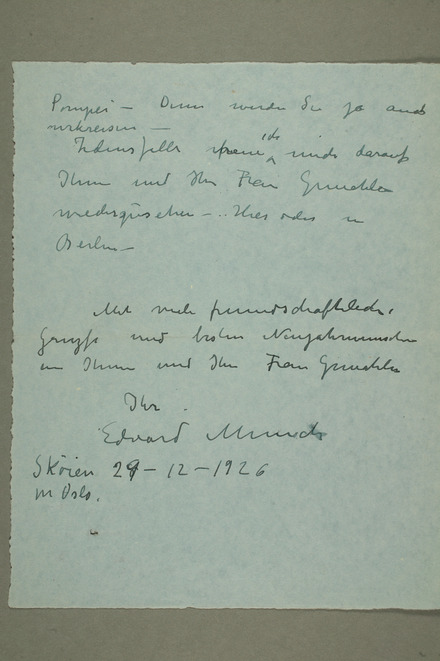 Pompei – Dann werden Sie ja auch
Jedenfalls freue ich mich darauf
Ihnen und Ihr Frau Gemahlin
wiederzusehen – .. Hier oder in
Berlin –
Mit viele freundschaftliche
Grüsse und besten Neujahrwünsche
an Ihnen und Ihr Frau Gemahlin
Ihr
Edvard Munch
Sköien 29–12–1926
Oslo.